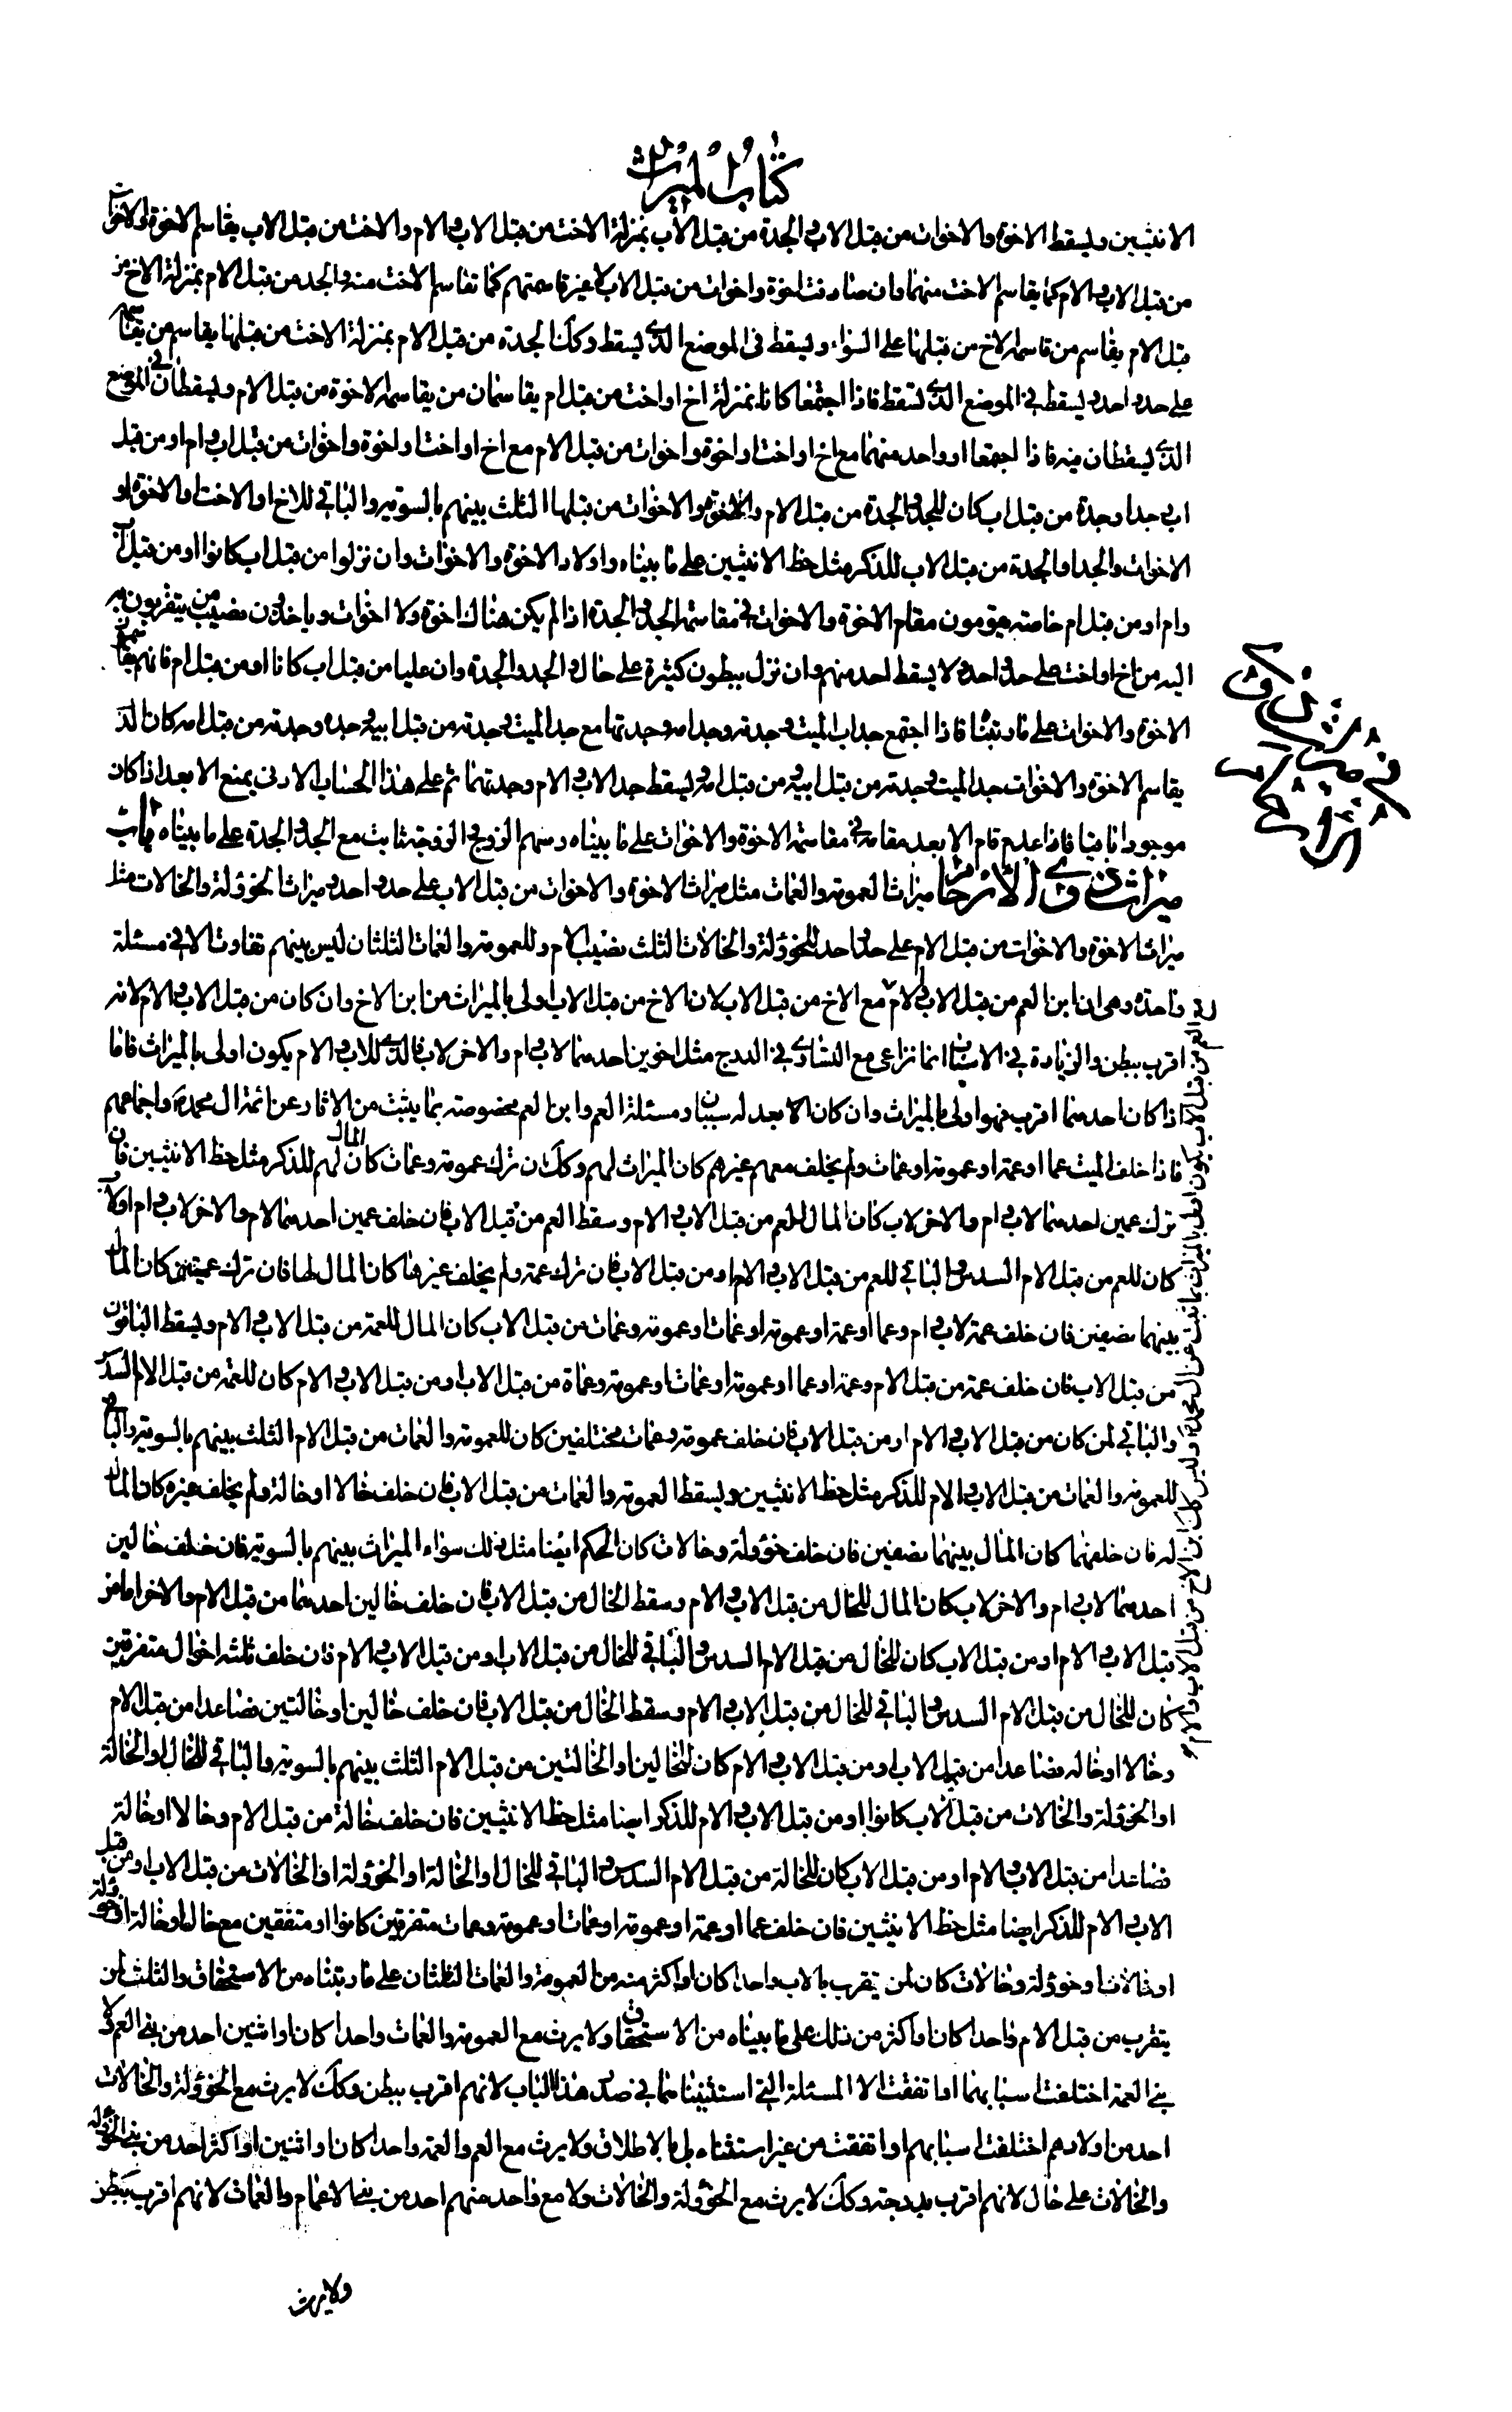 كتاب الميراث
الانثيين ويسقط الاخوة والاخوات من قبل الاب والجدة من قبل الاب بمنزلة الاخت من قبل الاب والام والاخت من قبل الاب يقاسم الاخوة والاخوات
من قبل الاب والام كما يقاسم الاخت منهما وان صادفت اخوة واخوات من قبل الاب لا غير قاسمتهم كما تقاسم الاخت منه والجد من قبل الام بمنزلة الاخ من
قبل الام يقاسم من قاسمه الاخ من قبلها على السواء ويسقط في الموضع الذى يسقط وكك الجدة من قبل الام بمنزلة الاخت من قبلها يقاسم من يقاسم
على حد واحد ويسقط في الموضع الذى تسقط فاذا اجتمعا كانا بمنزلة اخ او اخت من قبل ام يقاسمان من يقاسمه الاخوة من قبل الام ويسقطان في الموضع
الذى يسقطان فيه فاذا اجتمعا او واحد منهما مع اخ او اخت او اخوة واخوات من قبل الام مع اخ او اخت او اخوة واخوات من قبل اب وام او من قبل
اب وجد او جدة من قبل اب كان للجد والجدة من قبل الام والاخوة والاخوات من قبلها الثلث بينهم بالسوية والباقي للاخ او الاخت او الاخوة او
الاخوات والجد او الجدة من قبل الاب للذكر مثل حظ الانثيين على ما بيناه واولاد الاخوة والاخوات وان نزلوا من قبل اب كانوا او من قبل اب
وام او من قبل ام خاصة يقومون مقام الاخوة والاخوات في مقاسمة الجد والجدة اذا لم يكن هناك اخوة ولا اخوات وياخذون نصيب من يتقربون به
اليه من اخ او اخت على حد واحد ولا يسقط احد منهم وان نزل ببطون كثيرة على حال والجد والجدة وان عليا من قبل اب كانا او من قبل ام فانهم يقاسمون
الاخوة والاخوات على ما رتبنا فاذا اجتمع جد اب الميت وجدته وجد امه وجدتها مع جد الميت وجدته من قبل ابيه وجده وجدته من قبل امه كان الذى
يقاسم الاخوة والاخوات جد الميت وجدته من قبل ابيه ومن قبل امه ويسقط جد الاب والام وجدتهما ثم على هذا الحساب الادنى يمنع الابعد اذا كان
موجودا باقيا فاذا عدم قام الابعد مقامه في مقاسمة الاخوة والاخوات على ما بيناه وسهم الزوج والزوجة ثابت مع الجد والجدة على ما بيناه باب
ميراث ذوى الارحام ميراث العمومة والعمات مثل ميراث الاخوة والاخوات من قبل الاب على حد واحد وميراث الخؤولة والخالات مثل
ميراث الاخوة والاخوات من قبل الام على حد واحد للخؤولة والخالات الثلث نصيب الام وللعمومة والعمات الثلثان ليس بينهم تفاوت الا في مسئلة
واحدة وهى ان ابن العم من قبل الاب والام مع الاخ من قبل الاب لان الاخ من قبل الاب اولى بالميراث من ابن الاخ وان كان من قبل الاب والام لانه
اقرب ببطن والزيادة في الاسباب انما تراعى مع التساوى في الدرج مثل اخوين احدهما لاب وام والاخر لاب فالذى للاب والام يكون اولى بالميراث فاما
اذا كان احدهما اقرب فهو اولى بالميراث وان كان الابعد له سببان ومسئلة العم وابن العم مخصوصة بما يثبت من الاثار عن ائمة ال محمد ع واجماعهم
فاذا خلف الميت عما او عمة او عمومة او عمات ولم يخلف معهم غيرهم كان الميراث لهم وكك ان ترك عمومة وعمات كان المال لهم للذكر مثل حظ الانثيين فان
ترك عمين احدهما لاب وام والاخر لاب كان المال للعم من قبل الاب والام وسقط العم من قبل الاب فان خلف عمين احدهما لام والاخر لاب وام او لاب
كان للعم من قبل الام السدس والباقي للعم من قبل الاب والام او من قبل الاب فان ترك عمة ولم يخلف غيرها كان المال لها فان ترك عمتين كان المال
بينهما نصفين فان خلف عمة لاب وام وعما او عمة او عمومة او عمات او عمومة وعمات من قبل الاب كان المال للعمة من قبل الاب والام ويسقط الباقون
من قبل الاب فان خلف عمة من قبل الام وعمة او عما او عمومة او عمات او عمومة وعماة من قبل الاب او من قبل الاب والام كان للعمة من قبل الام السدس
والباقي لمن كان من قبل الاب والام او من قبل الاب فان خلف عمومة وعمات مختلفين كان للعمومة والعمات من قبل الام الثلث بينهم بالسوية والباقي
للعمومة والعمات من قبل الاب والام للذكر مثل حظ الانثيين ويسقط العمومة والعمات من قبل الاب فان خلف خالا او خالة ولم يخلف غيره كان المال
له فان خلفهما كان المال بينهما نصفين فان خلف خؤولة وخالات كان الحكم ايضا مثل ذلك سواء الميراث بينهم بالسوية فان خلف خالين
احدهما لاب وام والاخر لاب كان المال للخال من قبل الاب والام وسقط الخال من قبل الاب فان خلف خالين احدهما من قبل الام والاخر اما من
قبل الاب والام او من قبل الاب كان للخال من قبل الام السدس والباقي للخال من قبل الاب او من قبل الاب والام فان خلف ثلثة اخوال متفرقين
كان للخال من قبل الام السدس والباقي للخال من قبل الاب والام وسقط الخال من قبل الاب فان خلف خالين او خالتين فصاعدا من قبل الام
وخالا او خاله فصاعدا من قبل الاب او من قبل الاب والام كان للخالين او الخالتين من قبل الام الثلث بينهم بالسوية والباقي للخال او الخالة
او الخؤولة والخالات من قبل الاب كانوا او من قبل الاب والام للذكر ايضا مثل حظ الانثيين فان خلف خالة من قبل الام وخالا او خالة
فصاعدا من قبل الاب والام او من قبل الاب كان للخالة من قبل الام السدس والباقي للخال او الخالة او الخؤولة او الخالات من قبل الاب او من قبل
الاب والام للذكر ايضا مثل حظ الانثيين فان خلف عما او عمة او عمومة او عمات او عمومة وعمات متفرقين كانوا او متفقين مع خال او خالة او خؤولة
او خالات او خؤولة وخالات كان لمن يتقرب بالاب واحدا كان او اكثر منه من العمومة والعمات الثلثان على ما رتبناه من الاستحقاق والثلث لمن
يتقرب من قبل الام واحدا كان او اكثر من ذلك على ما بيناه من الاستحقاق ولا يرث مع العمومة والعمات واحدا كان او اثنين احد من بنى العم ولا
بنى العمة اختلفت اسبابهما او اتفقت الا المسئلة التي استثنيناها في صدر هذا الباب لانهم اقرب ببطن وكك لا يرث مع الخؤولة والخالات
احد من اولادهم اختلفت اسبابهم او اتفقت من غير استثناء بل بالاطلاق ولا يرث مع العم والعمة واحدا كان او اثنين او اكثر احد من بنى الخؤولة
والخالات على حال لانهم اقرب بدرجة وكك لا يرث مع الخؤولة والخالات ولا مع واحد منهم احد من بنى الاعمام والعمات لانهم اقرب ببطن
ولا يرث
العم من قبل الاب يكون اولى بالميراث بما ثبت عن ال محمد ع وليس كك ابن الاخ من قبل الاب والام